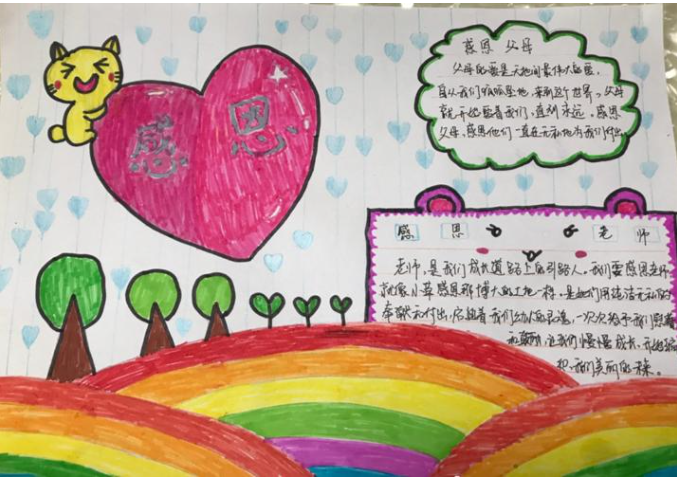 感恩
感恩 父母
父母的爱是天地间最伟大的爱,
自从我们呱呱坠地,来到这个世界,父母
就开始爱着我们,直到永远,感恩
父母,感恩他们一直在无私地为我们付出
感恩 老师
老师,是我们成长道路上的引路人。我们要感恩老师
就像小草感恩那博大的土地一样。是他们用清洁无私的
奉献和付出,启迪着我们幼小的灵魂,一次次给予我们
和 让我们慢慢成长,开始
织 我们美丽的未来。